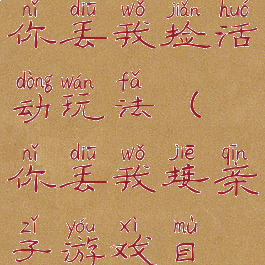 nǐ diū wǒ jiǎn huó
你丢我捡活
dòng wán fǎ
动玩法（
nǐ diū wǒ jiē qīn
你丢我接亲
zǐ yóu xì mù
子游戏目